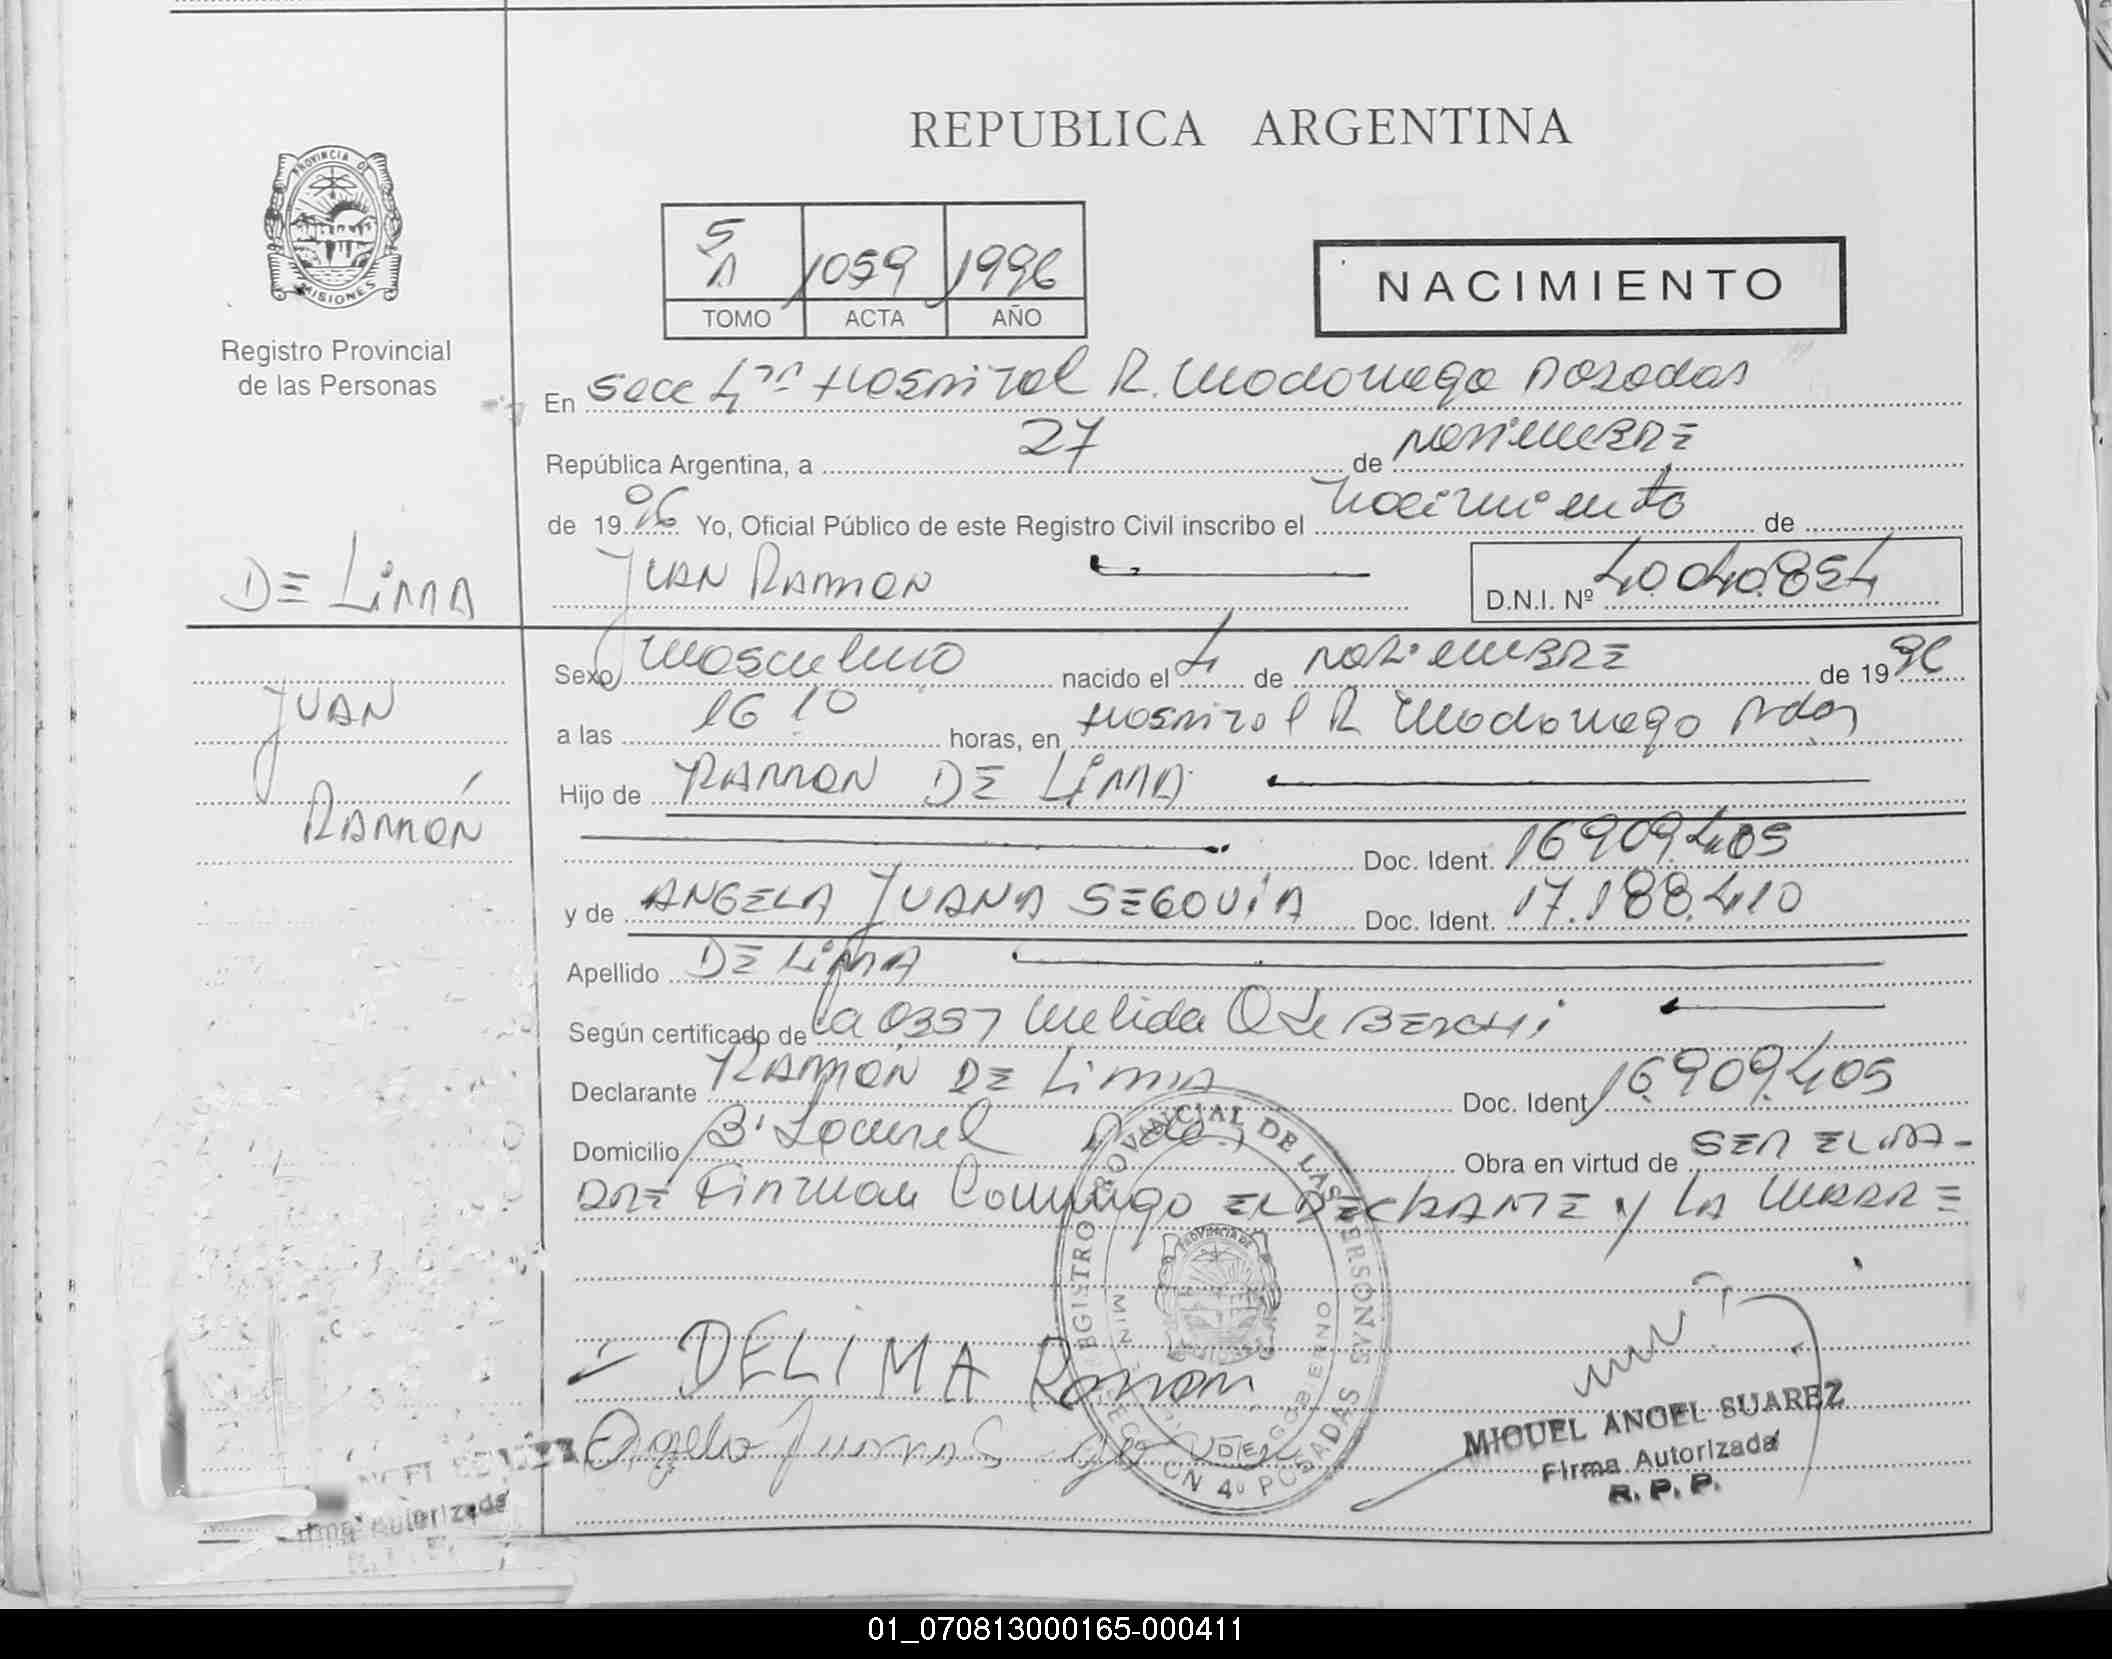 REPUBLICA ARGENTINA
PROVINCIA DE
MISIONES
Registro Provincial
de las Personas
5
A 1059 1996
TOMO ACTA AÑO
NACIMIENTO
En Secc 4ta Hospital R. Madariaga Posadas
República Argentina, a 27 de NOVIEMBRE
de 1996 Yo, Oficial Público de este Registro Civil inscribo el Nacimiento de
JUAN RAMON
D.N.I. Nº 40.040.854
DE LIMA
JUAN
RAMÓN
Sexo Masculino nacido el 4 de NOVIEMBRE de 1996
a las 16 10 horas, en Hospital R Madariaga Pdas
Hijo de RAMON DE LIMA
Doc. Ident. 16.909.405
y de ANGELA JUANA SEGOVIA Doc. Ident. 17.188.410
Apellido DE LIMA
Según certificado de la Melida de
Declarante RAMÓN DE LIMA Doc. Ident 16.909.405
Domicilio B' Laurel Pdas Obra en virtud de SER EL PA-
DRE Firman Conmigo EL DECLARANTE y LA MADRE
REGISTRO PROVINCIAL DE LAS PERSONAS
PROVINCIA DE
MISIONES
MIN DE GOBIERNO
SECCION 4º POSADAS
DELIMA Ramon
Angela Juana
MIGUEL ANGEL SUAREZ
Firma Autorizada
R. P. P.
Firma Autorizada
01_070813000165-000411